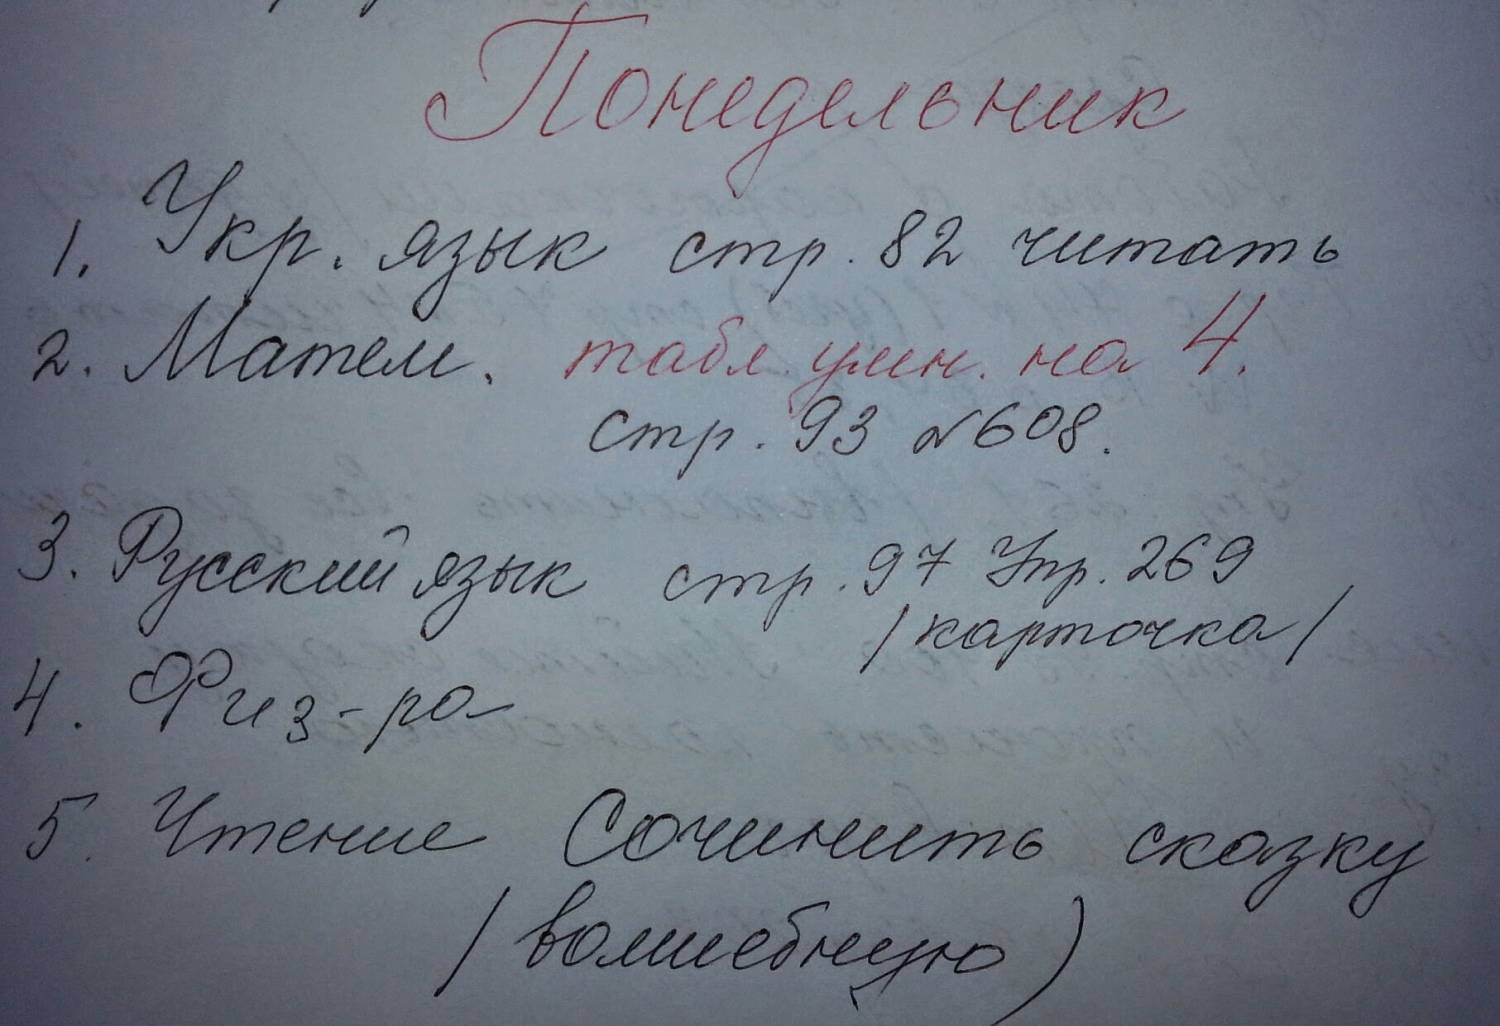 Понедельник
1. Укр. язык стр. 82 читать
2. Матем. табл умн. на 4.
стр. 93 №608.
3. Русский язык стр. 97 Упр. 269
/карточка/
4. Физ-ра
5. Чтение Сочинить сказку
/волшебную)